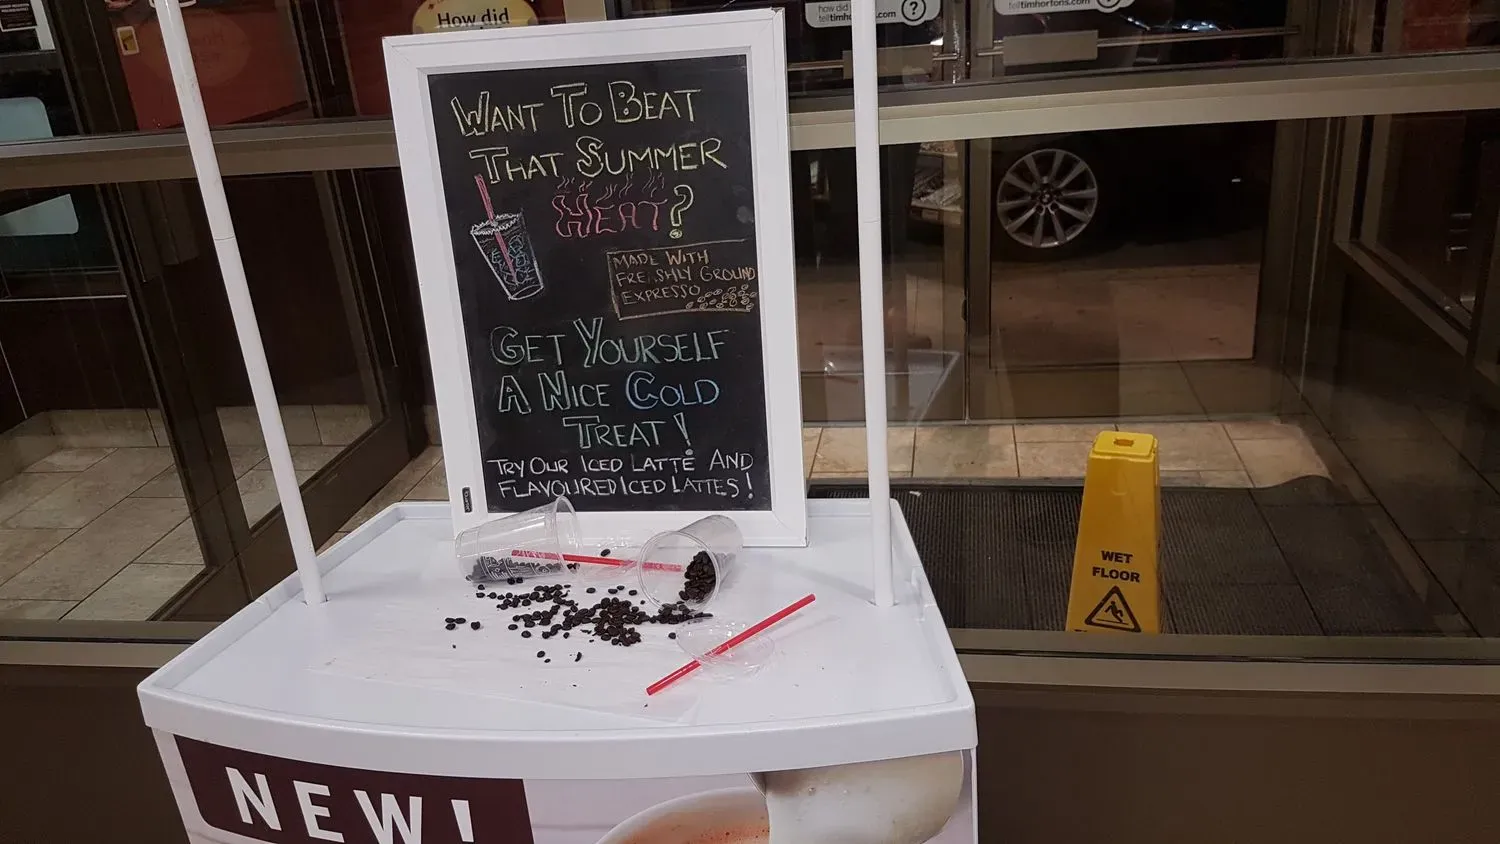 How did
how did
telltimhortons.com
?
telltimhortons.com
?
WANT TO BEAT
THAT SUMMER
HEAT?
MADE WITH
FRESHLY GROUND
EXPRESSO
GET YOURSELF
A NICE COLD
TREAT!
TRY OUR ICED LATTE AND
FLAVOURED ICED LATTES!
WET
FLOOR
NEW!